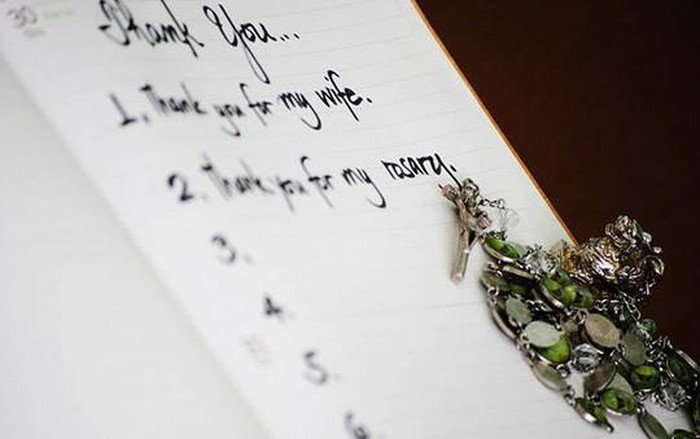 30
Thank You...
1. Thank you for my wife.
2. Thank you for my rosary.
3.
4.
5.
6.